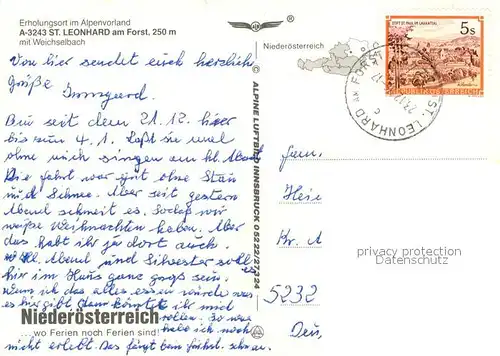 Erholungsort im Alpenvorland
A-3243 ST. LEONHARD am Forst, 250 m
mit Weichselbach
Von hier sendet euch herzliche
Grüße Irmgard.
Bin seit dem 21.12. hier
bis zum 4.1. Laßt sie mal
ohne mich singen am hl. Abend
Die Fahrt war gut ohne Stau
und Schnee. Aber seit gestern
Abend schneit es. Sodaß wir
weiße Weihnachten haben. Aber
das habt ihr ja dort auch.
Hl. Abend und Silvester soll
hier im Haus ganz groß sein.
wenn ich das alles essen würde was
es hier gibt dann könntet ihr mich
rollen. So was
habe ich noch
nicht erlebt. Das fängt beim
Niederösterreich
...wo Ferien noch Ferien sind!
© ALPINE LUFTBILD INNSBRUCK 05222/27324
Niederösterreich
STIFT ST. PAUL IM LAVANTTAL
5s
REPUBLIK ÖSTERREICH
ST. LEONHARD AM FORST
Fam.
Heie
Kr. A
5232
Deu
privacy protection
Datenschutz